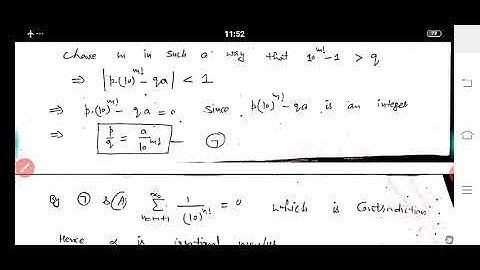 11:52
Chose m in such a way that 10^{m!} - 1 > q
⇒ |p.(10)^{m!} - qa| < 1
⇒ p.(10)^{m!} - qa = 0 since p(10)^{m!} - qa is an integer
⇒ p/q = a/10^{m!} — ⑦
By ⑦ & (A) ∑_{n=m+1}^{∞} 1/(10)^{n!} = 0 which is Contradiction
Hence α is irrational number